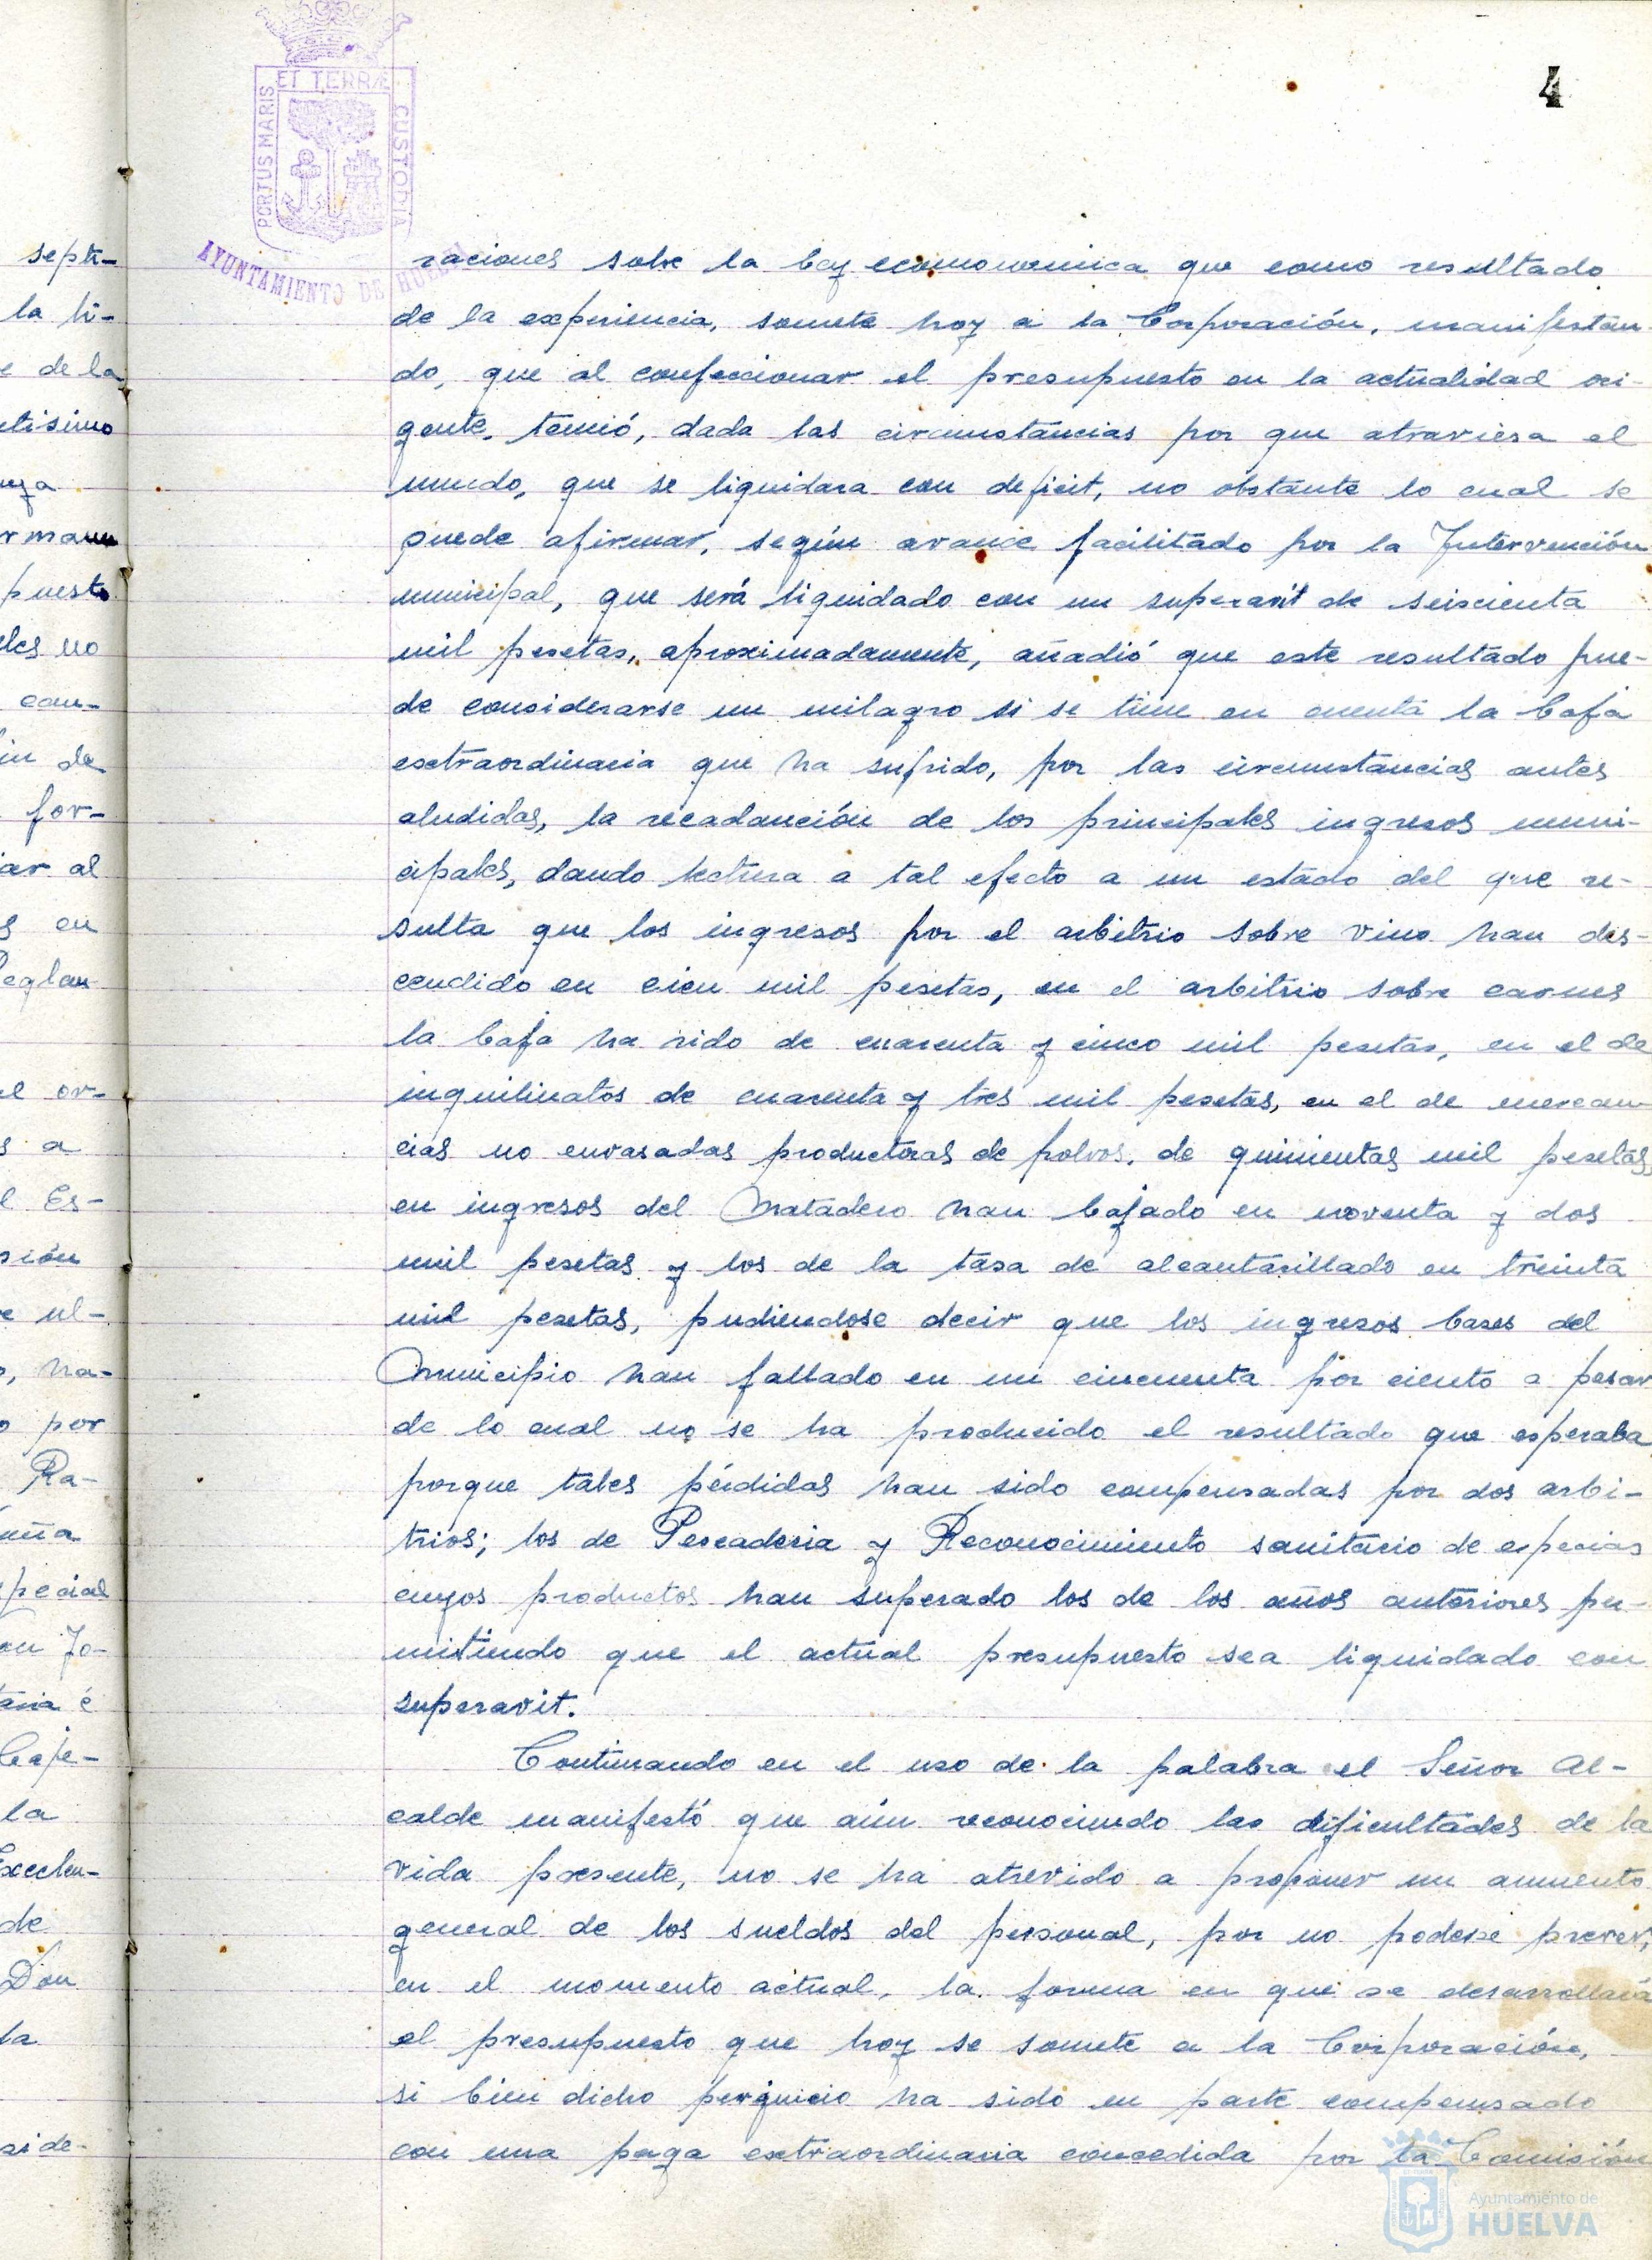 4
PORTUS MARIS ET TERRÆ CUSTODIA
AYUNTAMIENTO DE HUELVA
septi-
la li-
e de la
tisimo
rman
puesto
eles no
can-
in de
for-
iar al
s en
Reglam
el or-
s a
l Es-
sión
e ul-
o, ha-
o por
Ra-
uña
pecial
on Jo-
taria é
Caje-
la
Excelen-
de
Don
la
side-
raciones sobre la Ley economonica que como resultado
de la experiencia, somete hoy a la Corporación, manifestan-
do, que al confeccionar el presupuesto en la actualidad vi-
gente, temió, dada las circunstancias por que atraviesa el
mundo, que se liquidara con deficit, no obstante lo cual se
puede afirmar, según avance facilitado por la Intervención
municipal, que será liquidado con un superavit de seiscienta
mil pesetas, aproximadamente, añadió que este resultado pue-
de considerarse un milagro si se tiene en cuenta la baja
extraordinaria que ha sufrido, por las circunstancias antes
aludidas, la recadanción de los principales ingresos muni-
cipales, dando lectura a tal efecto a un estado del que re-
sulta que los ingresos por el arbitrio sobre vino han des-
cendido en cien mil pesetas, en el arbitrio sobre carnes
la baja ha sido de cuarenta y cinco mil pesetas, en el de
inquilinatos de cuarenta y tres mil pesetas, en el de mercan-
cias no envasadas productoras de polvos, de quinientas mil pesetas,
en ingresos del Matadero han bajado en noventa y dos
mil pesetas y los de la tasa de alcantarillado en treinta
mil pesetas, pudiendose decir que los ingresos bases del
Municipio han fallado en un cincuenta por ciento a pesar
de lo cual no se ha producido el resultado que esperaba
porque tales pérdidas han sido compensadas por dos arbi-
trios; los de Pescaderia y Reconocimiento sanitario de especias
cuyos productos han superado los de los años anteriores per-
mitiendo que el actual presupuesto sea liquidado con
superavit.
Continuando en el uso de la palabra el Señor Al-
calde manifestó que aún reconociendo las dificultades de la
vida presente, no se ha atrevido a proponer un aumento
general de los sueldos del personal, por no poderse prever,
en el momento actual, la forma en que se desarrollará
el presupuesto que hoy se somete a la Corporación,
si bien dicho perjuicio ha sido en parte compensado
con una paga extraordinaria concedida por la Comisión
Ayuntamiento de
HUELVA